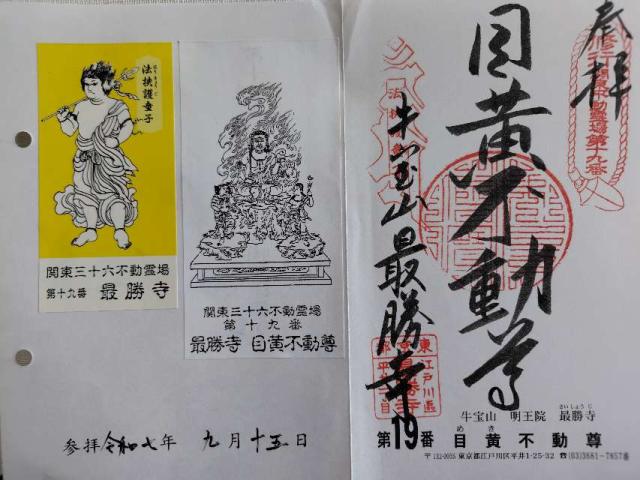 法挾護童子
関東三十六不動霊場
第十九番 最勝寺
関東三十六不動霊場
第十九番
最勝寺 目黄不動尊
参拝令和七年 九月十五日
奉拝
目黄不動尊
牛宝山最勝寺
さいしょうじ
牛宝山 明王院 最勝寺
めき
第19番 目黄不動尊
〒132-0035 東京都江戸川区平井1-25-32 ☎(03)3681-7857番